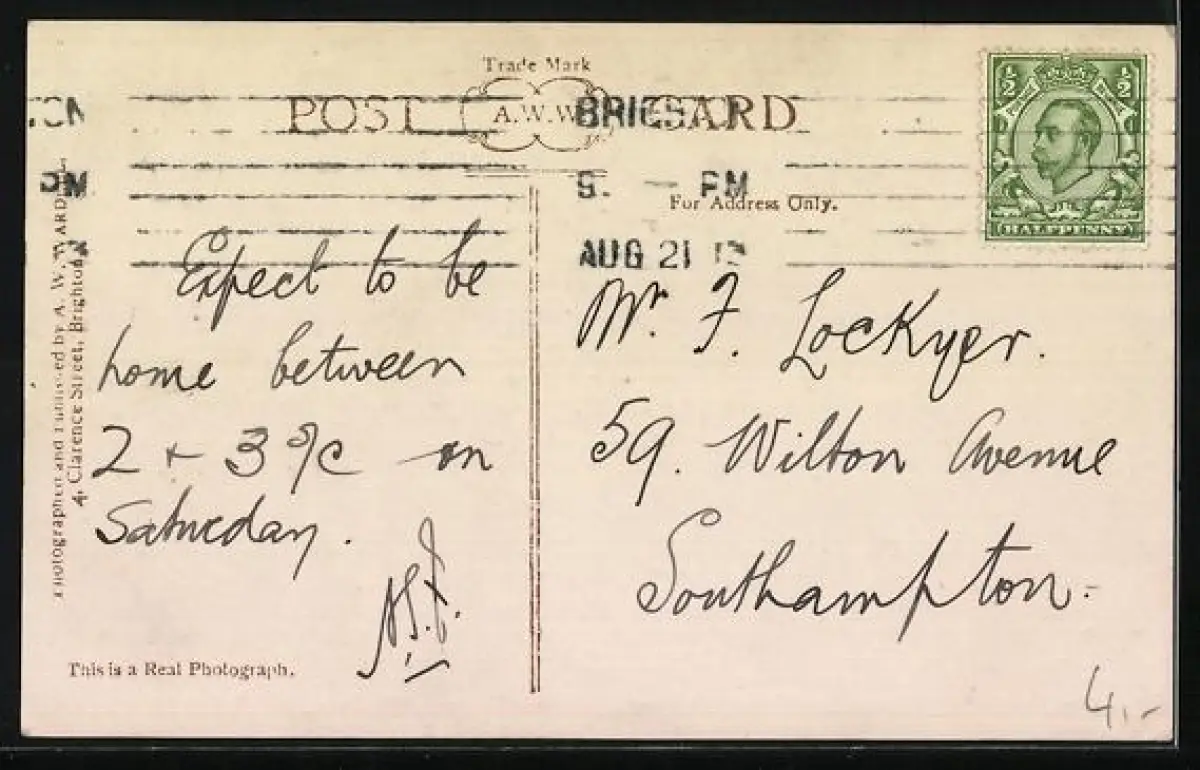 Trade Mark
POST A.W.W. CARD
5. — PM
For Address Only.
AUG 21 12
½ ½
HALFPENNY
Expect to be
home between
2 + 3 o/c on
Saturday.
Mr. F. Lockyer.
59. Wilton Avenue
Southampton.
This is a Real Photograph.
4.-
Photographed and Published by A. W. WARD,
4, Clarence Street, Brighton.
PM